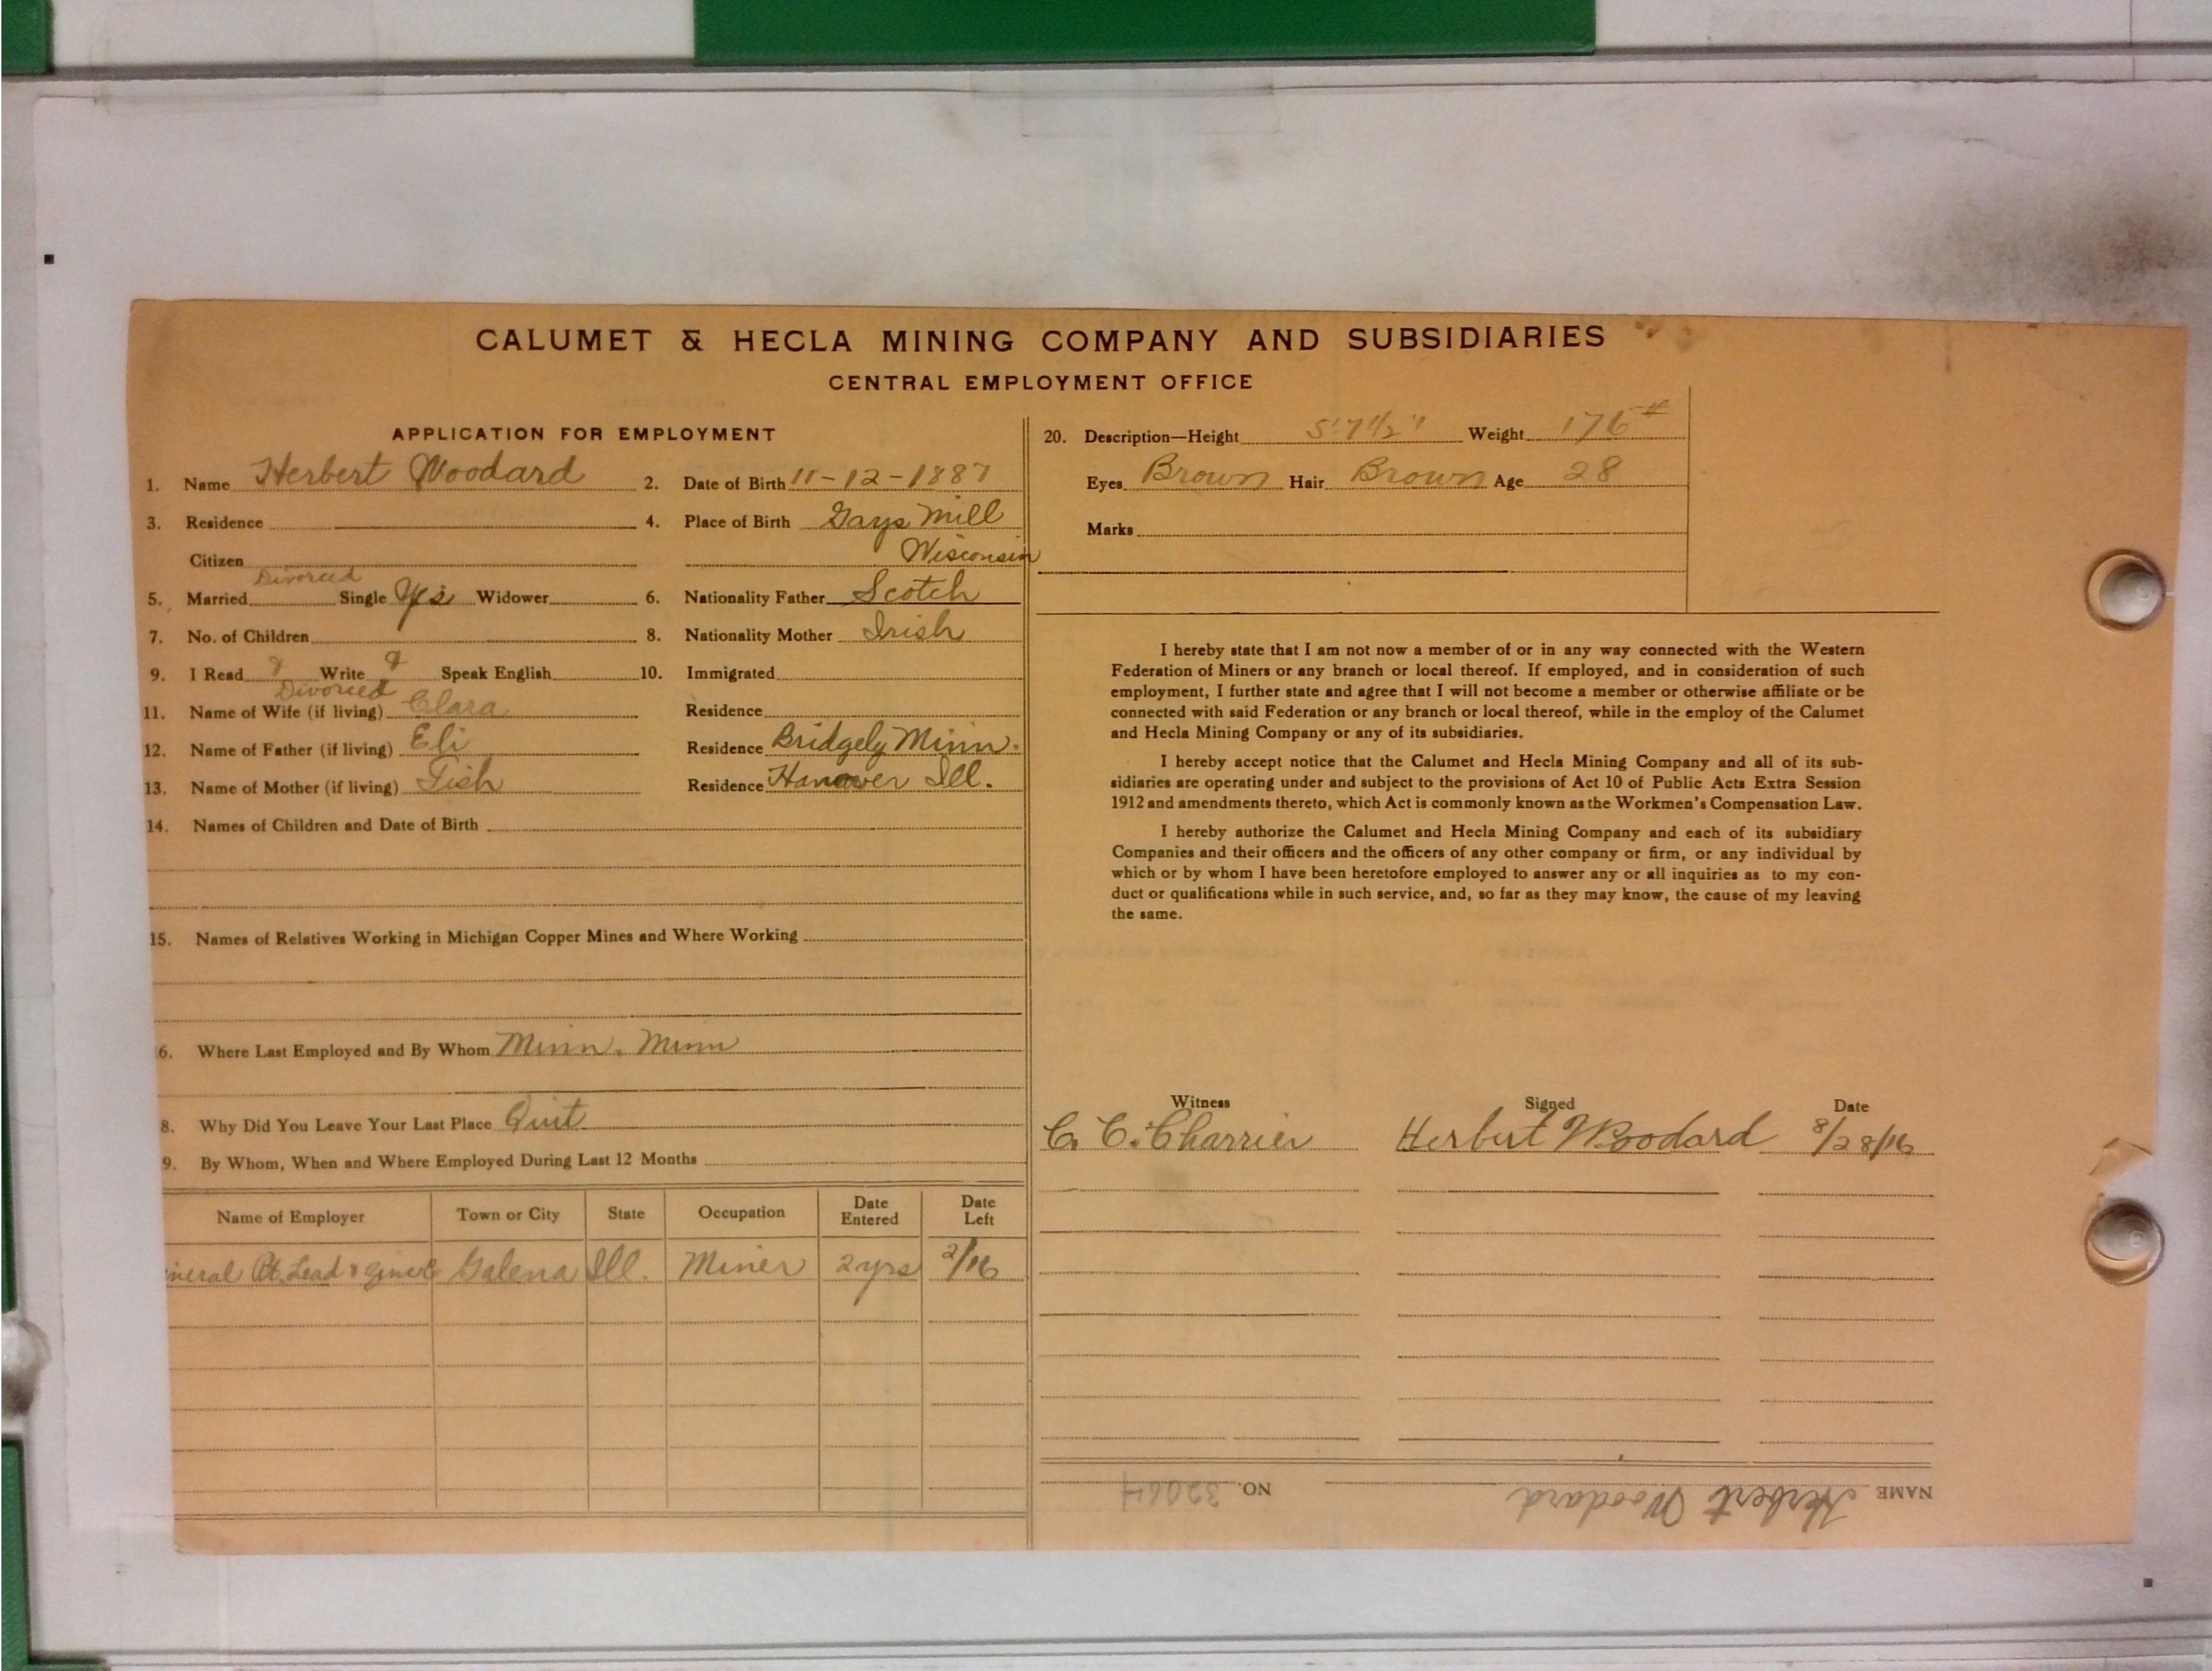 CALUMET & HECLA MINING COMPANY AND SUBSIDIARIES
CENTRAL EMPLOYMENT OFFICE
APPLICATION FOR EMPLOYMENT
1. Name Herbert Woodard 2. Date of Birth 11-12-1887
3. Residence 4. Place of Birth Gays Mill
Citizen Wisconsin
Divorced
5. Married Single Yes Widower 6. Nationality Father Scotch
7. No. of Children 8. Nationality Mother Irish
9. I Read Write Speak English 10. Immigrated
Divorced
11. Name of Wife (if living) Clara Residence
12. Name of Father (if living) Eli Residence Bridgely Minn.
13. Name of Mother (if living) Tish Residence Hanover Ill.
14. Names of Children and Date of Birth
15. Names of Relatives Working in Michigan Copper Mines and Where Working
6. Where Last Employed and By Whom Minn. Minn
8. Why Did You Leave Your Last Place Quit
9. By Whom, When and Where Employed During Last 12 Months
Name of Employer Town or City State Occupation Date Entered Date Left
ineral Pt. Lead & Zinc Galena Ill. Miner 2 yrs 2/16
20. Description—Height 5'7 1/2" Weight 176#
Eyes Brown Hair Brown Age 28
Marks
I hereby state that I am not now a member of or in any way connected with the Western
Federation of Miners or any branch or local thereof. If employed, and in consideration of such
employment, I further state and agree that I will not become a member or otherwise affiliate or be
connected with said Federation or any branch or local thereof, while in the employ of the Calumet
and Hecla Mining Company or any of its subsidiaries.
I hereby accept notice that the Calumet and Hecla Mining Company and all of its sub-
sidiaries are operating under and subject to the provisions of Act 10 of Public Acts Extra Session
1912 and amendments thereto, which Act is commonly known as the Workmen's Compensation Law.
I hereby authorize the Calumet and Hecla Mining Company and each of its subsidiary
Companies and their officers and the officers of any other company or firm, or any individual by
which or by whom I have been heretofore employed to answer any or all inquiries as to my con-
duct or qualifications while in such service, and, so far as they may know, the cause of my leaving
the same.
Witness Signed Date
C. C. Charrier Herbert Woodard 8/28/16
NAME Herbert Woodard NO. 32064